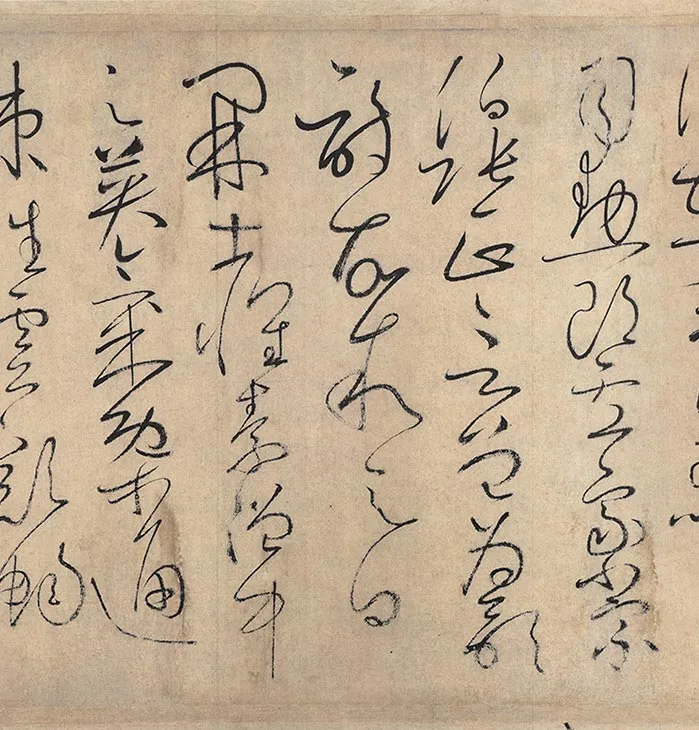 司勳郎盧象小宗
伯張正言曾為歌
詩故敘之曰
開士懷素僧中
之英氣概通
疎性靈豁暢